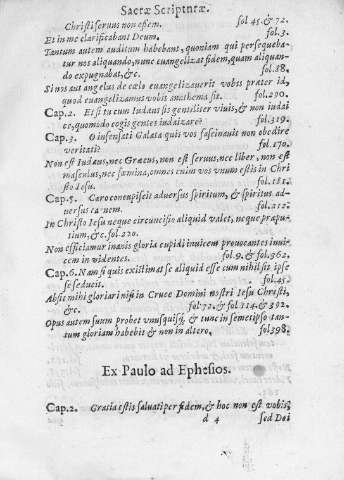 Sacræ Scripturæ.
Christi seruus non essem. fol 45. & 72.
Et in me clarificabant Deum. fol. 3.
Tantum autem auditum habebant, quoniam qui persequeba-
tur nos aliquando, nunc euangelizat fidem, quam aliquan-
do expugnabat, &c. fol. 88.
Si nos aut angelus de cælo euangelizauerit vobis præter id,
quod euangelizamus vobis anathema sit. fol. 290.
Cap. 2. Et si tu cum Iudæus sis gentiliter viuis, & non iudai
ce, quomodo cogis gentes iudaizare? fol. 319.
Cap. 3. O insensati Galatæ quis vos fascinauit non obedire
veritati? fol. 170.
Non est Iudæus, nec Græcus, non est seruus, nec liber, non est
masculus, nec fœmina, omnes enim vos vnum estis in Chri
sto Iesu. fol. 181.
Cap. 5. Caro concupiscit aduersus spiritum, & spiritus ad-
uersus carnem. fol. 212.
In Christo Iesu neque circuncisio aliquid valet, neque præpu-
tium, &c. fol. 220.
Non efficiamur inanis gloriæ cupidi inuicem prouocantes inui-
cem inuidentes. fol. 9. & fol. 362.
Cap. 6. Nam si quis existimat se aliquid esse cum nihil sit ipse
se seducit. fol. 45.
Absit mihi gloriari nisi in Cruce Domini nostri Iesu Christi,
&c. fol 72. & fol 114 & 392.
Opus autem suum probet vnusquisq; & tunc in semetipso tan-
tum gloriam habebit & non in altero. fol 398.
Ex Paulo ad Ephesios.
Cap. 2. Gratia estis saluati per fidem, & hoc non est vobis,
d 4 sed Dei